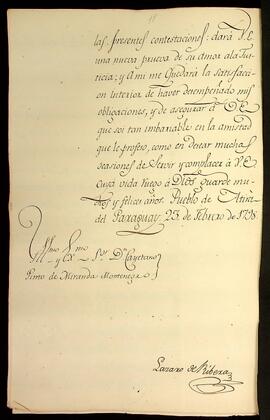 las presentes contestaciones: dará V.E
una nueva prueba de su amor ala Jus-
ticia; y A mi me Quedará la satisfac-
ion interior de haver desempeñado mis
obligaciones, y de asegurar à V.E
que soi tan imbariable en la amistad
que le profeso, como en desear muchas
ocasiones de Servir y complacer à V.E
Cuia vida Ruego à Dios guarde mu-
chos y felices años. Pueblo de
del Paraguay 23 de Febrero de
Ylmo Sмо y Ex. Sor Dn Cayetano
Pimo de Miranda Montenegro
Lazaro de Ribera